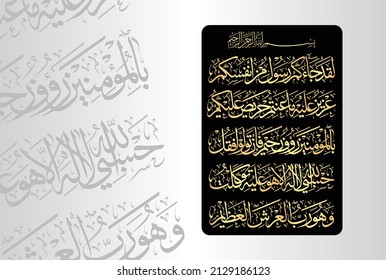 بسم الله الرحمن الرحيم
لقد جاءكم رسول من أنفسكم
عزيز عليه ما عنتم حريص عليكم
بالمؤمنين رءوف رحيم فإن تولوا فقل
حسبي الله لا إله إلا هو عليه توكلت
وهو رب العرش العظيم
عزيز عليه ما عنتم
بالمؤمنين رءوف رحيم
حسبي الله لا إله إلا هو
وهو رب العرش
shutterstock
IMAGE ID: 2129186123
www.shutterstock.com